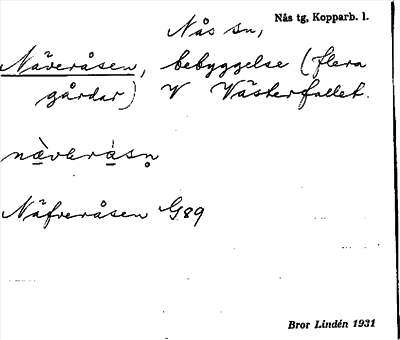 Nås sn, Nås tg, Kopparb. l.
Näveråsen, bebyggelse (flera
gårdar) V Västerfallet.
nǟvəråsn̥
Näfveråsen G89
Bror Lindén 1931